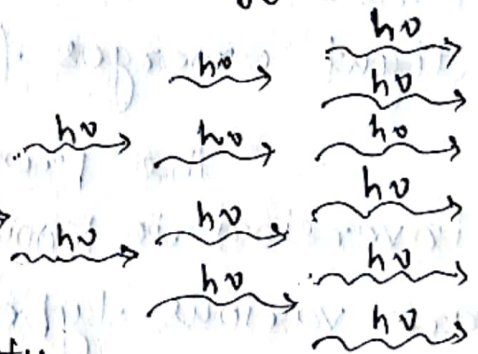 hν
hν
hν
hν hν hν
hν
hν
hν
hν hν
hν